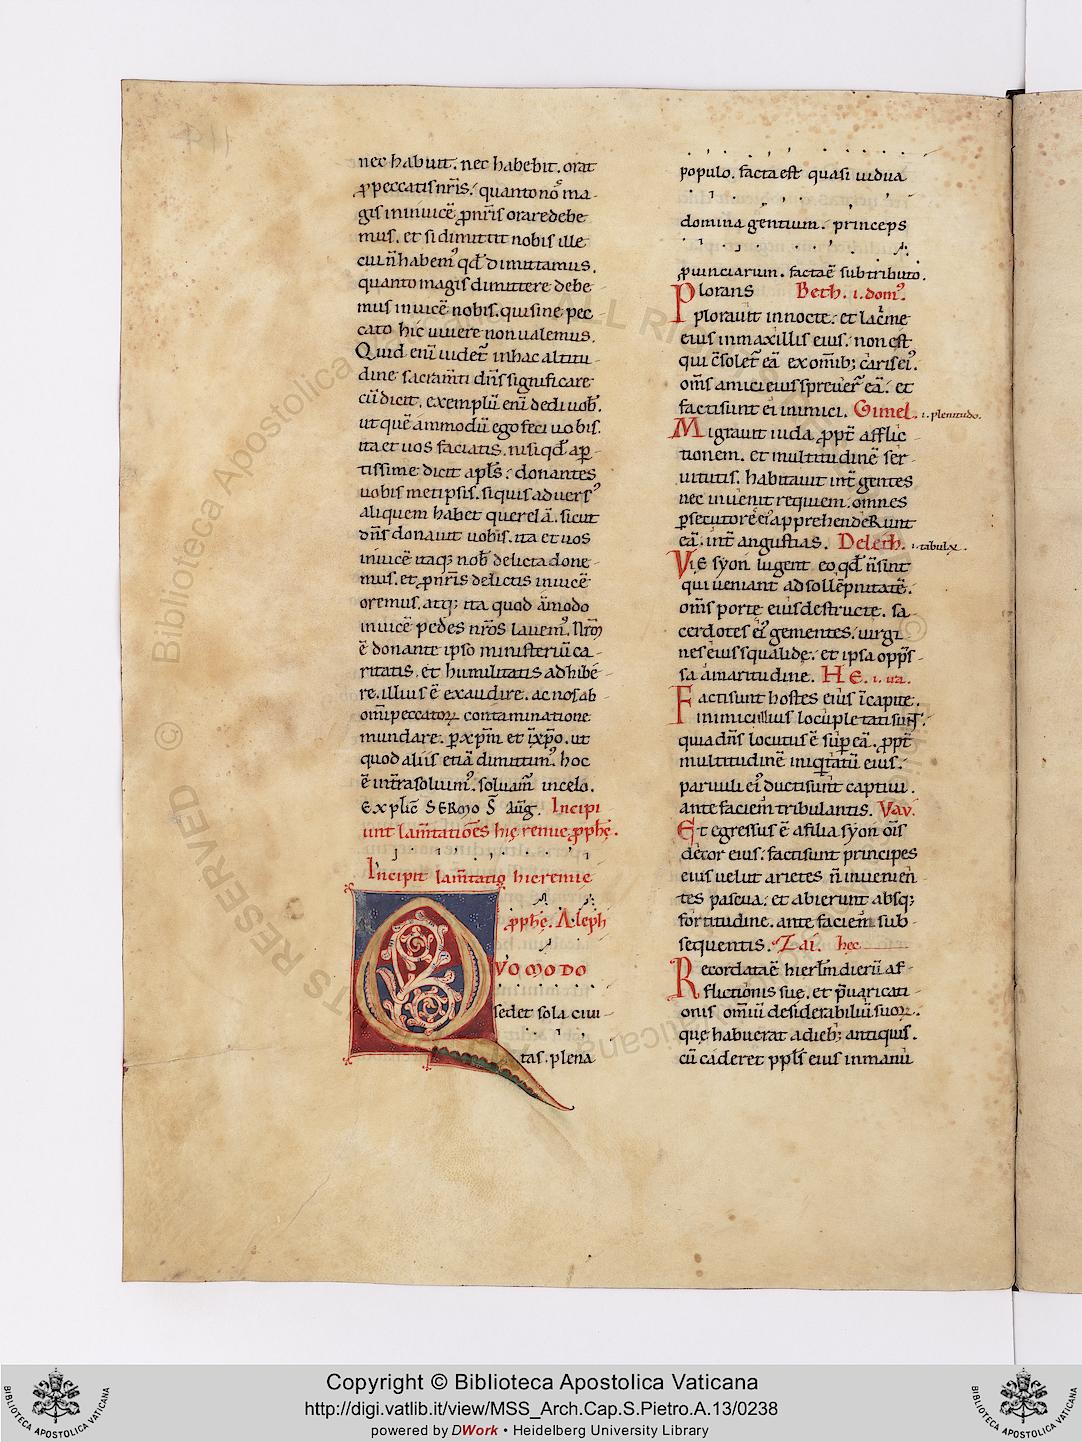 nec habuit. nec habebit. orat
ꝓ peccatis nr̄is. quanto nō ma-
gis in inuicē ꝓ nr̄is orare debe
mus. et si dimittit nobis ille
cui n̄ habem᾽ qd̄ dimittamus.
quanto magis dimittere debe
mus inuicē nobis. qui sine pec
cato hic uiuere non ualemus.
Quid eni᷑ uidet᷑ in hac altitu-
dine sacram̄ti dn̄s significare
cū dicit. exemplū eni᷑ dedi uob̄.
ut quē ammodū ego feci uobis.
ita et uos faciatis. nisi qd̄ aꝑ-
tissime dicit apl̄s. donantes
uobis metipsis. siquis aduers᾽
aliquem habet querelā. sicut
dn̄s donauit uobis. ita et uos
inuicē itaq; nob̄ delicta done-
mus. et ꝓ nr̄is delictis inuicē
oremus. atq; ita quod āmodo
inuicē pedes nr̄os lauem᾽. Nr̄m
ē donante ipso ministeriū ca-
ritatis. et humilitatis adhibe-
re. illius ē exaudire. ac nos ab
om̄i peccatoꝝ contaminatione
mundare. ꝑ xp̄m et in xp̄o. ut
quod aliis etiā dimittim᾽. hoc
ē in tr̄a soluim᾽. soluam᾽ in celo.
Explic̄ SERmo S̄ Aug̅. Incipi
unt lam̄tatiōes hieremie ꝓphę.
Incipit lam̄tatio hieremię
ꝓphę. Aleph
QVOMODO
sedet sola ciui-
tas. plena
populo. facta est quasi uidua
domina gentium. princeps
ꝓuinciarum. facta ē sub tributo.
Plorans Beth. i. dom᾽.
plorauit in nocte. et lac̄me
eius in maxillis eius. non est
qui c̄solet᷑ eā ex om̄ib; caris ei᾽.
om̄s amici eius spreuer̄ eā. et
facti sunt ei inimici. Gimel. i. plenitudo.
Migrauit iuda ꝓpt̄ afflic-
tionem. et multitudinē ser-
uitutis. habitauit int̄ gentes
nec inuenit requiem. omnes
ꝑsecutores ei᾽ apprehendeRunt
eā. int̄ angustias. Deleth. i. tabulę.
Vię syon lugent eo qd̄ n̄ sint
qui ueniant ad sollēpnitatē.
om̄s porte eius destructe. sa-
cerdotes ei᾽ gementes. uirgi
nes eius squalidę. et ipsa opp̄s-
sa amaritudine. HE. i. ita.
Facti sunt hostes eius ī capite.
inimici illius locupletati sunt.
quia dn̄s locutus ē suꝑ eā. ꝓpt̄
multitudinē iniq͛tatū eius.
paruuli ei᾽ ducti sunt captiui.
ante faciem tribulantis. Vav.
Et egressus ē a filia syon om̄is
decor eius. facti sunt principes
eius uelut arietes n̄ inuenien-
tes pascua. et abierunt absq;
fortitudine. ante faciem sub-
sequentis. Zai. hec
Recordata ē hierl̄m dierū af-
flictionis sue. et p̄uaricati-
onis om̄iū desiderabiliū suoꝝ.
que habuerat a dieb; antiquis.
cū caderet ppl̄s eius in manu
Copyright © Biblioteca Apostolica Vaticana
http://digi.vatlib.it/view/MSS_Arch.Cap.S.Pietro.A.13/0238
powered by DWork • Heidelberg University Library
BIBLIOTECA APOSTOLICA VATICANA
BIBLIOTECA APOSTOLICA VATICANA